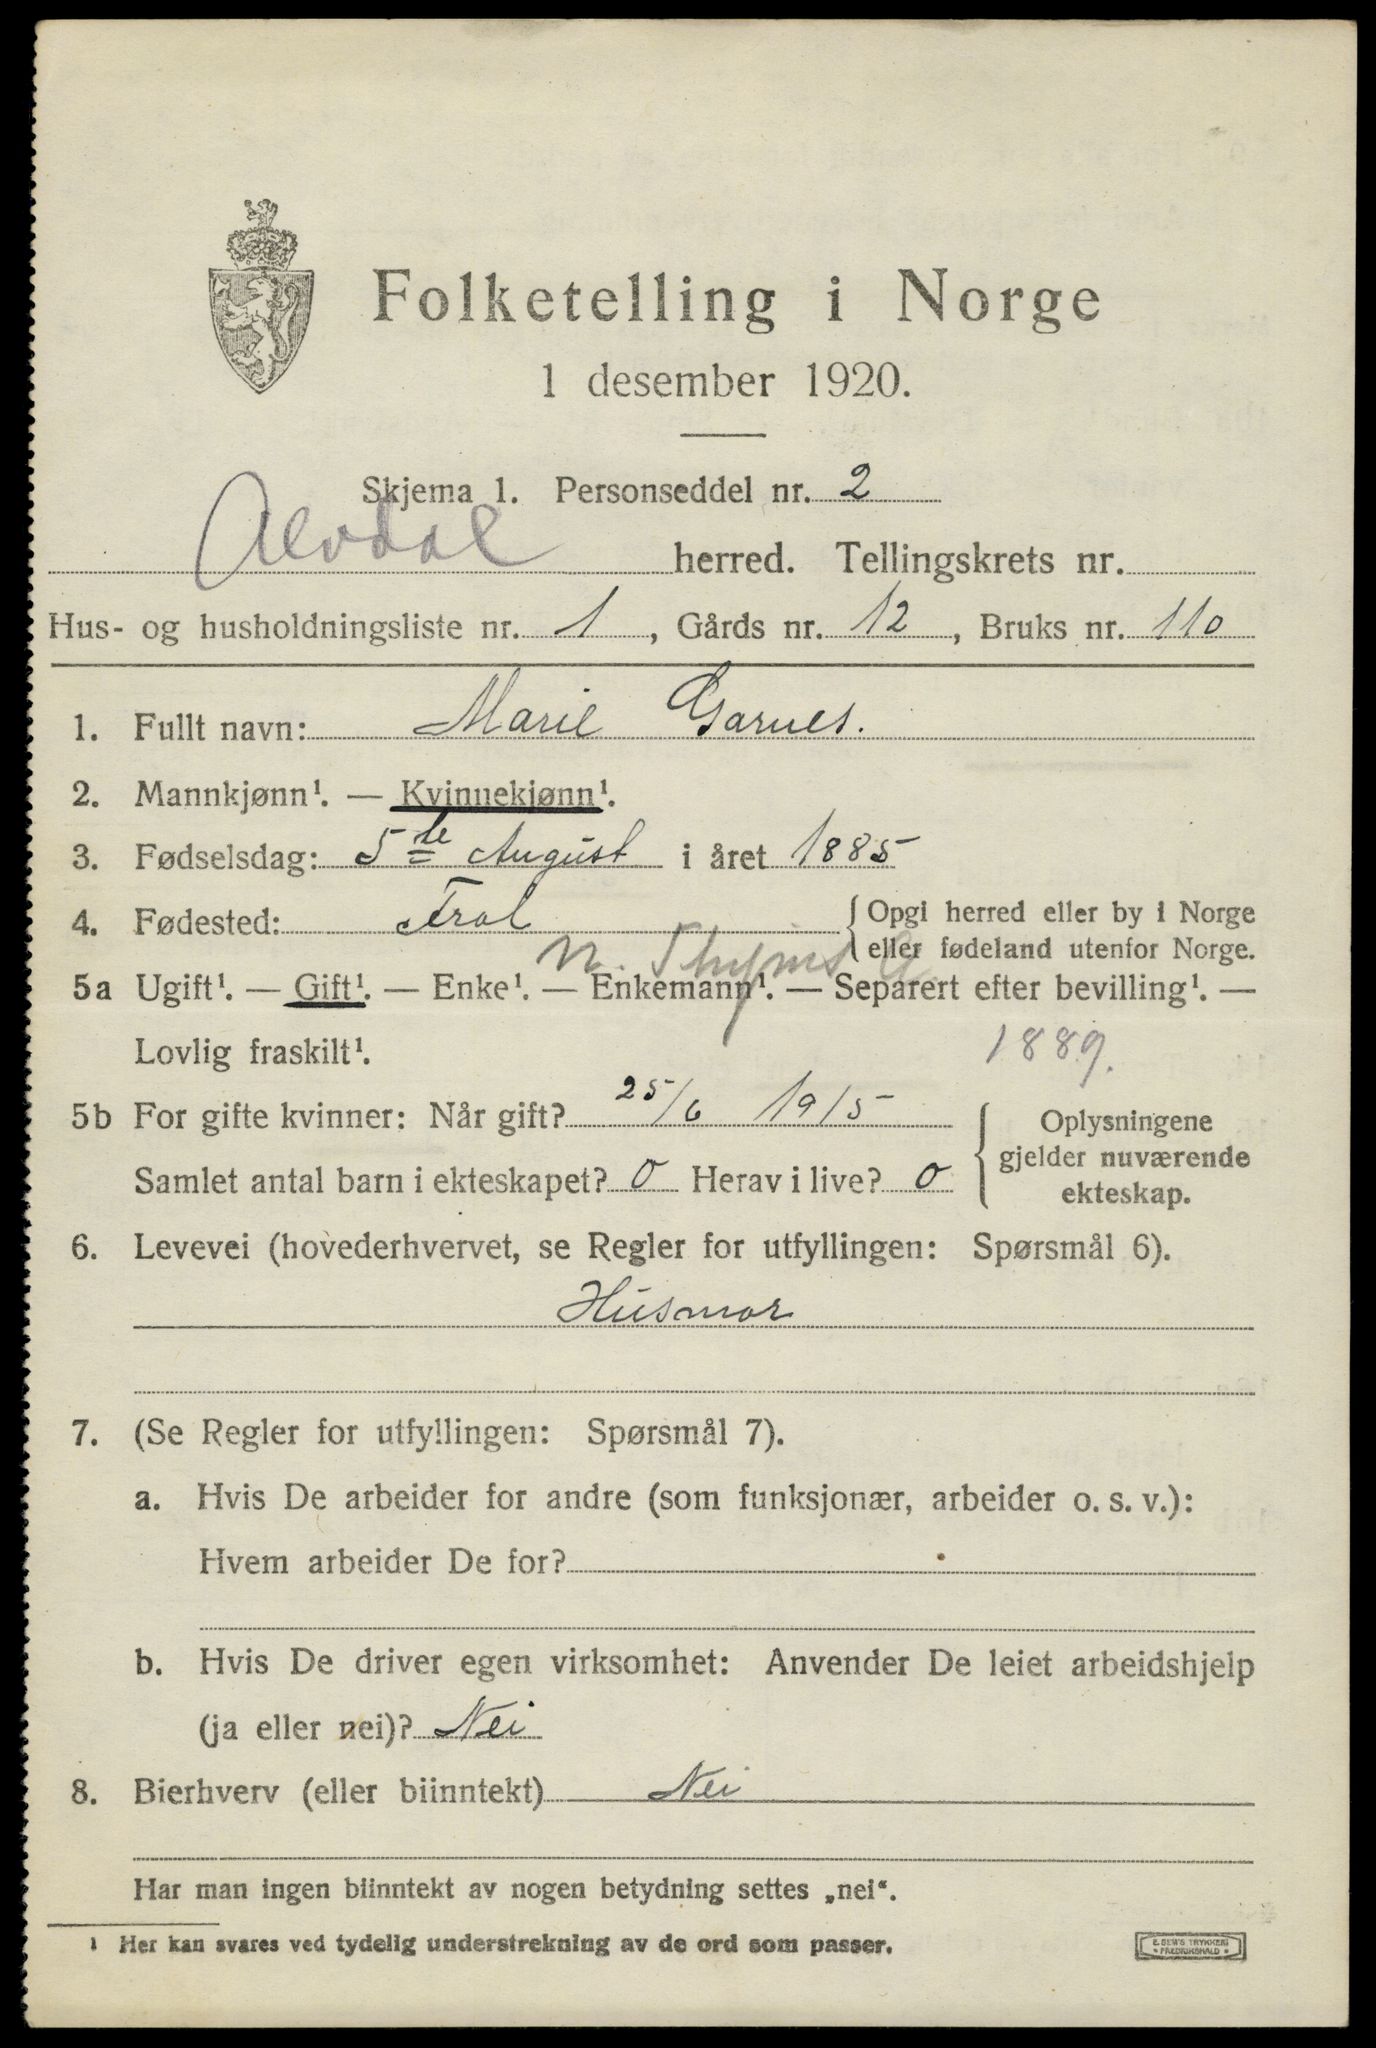 Folketelling i Norge
1 desember 1920.
Skjema 1. Personseddel nr. 2
Alvdal herred. Tellingskrets nr.
Hus- og husholdningsliste nr. 1, Gårds nr. 12, Bruks nr. 110
1. Fullt navn: Marie Garnes.
2. Mannkjønn¹. — Kvinnekjønn¹.
3. Fødselsdag: 5te August i året 1885
4. Fødested: Frol { Opgi herred eller by i Norge
eller fødeland utenfor Norge.
N.
5a Ugift¹. — Gift¹. — Enke¹. — Enkemann¹. — Separert efter bevilling¹. —
Lovlig fraskilt¹. 1889.
5b For gifte kvinner: Når gift? 25/6 1915
Samlet antal barn i ekteskapet? 0 Herav i live? 0
{ Oplysningene
gjelder nuværende
ekteskap.
6. Levevei (hovederhvervet, se Regler for utfyllingen: Spørsmål 6).
Husmor
7. (Se Regler for utfyllingen: Spørsmål 7).
a. Hvis De arbeider for andre (som funksjonær, arbeider o. s. v.):
Hvem arbeider De for?
b. Hvis De driver egen virksomhet: Anvender De leiet arbeidshjelp
(ja eller nei)? Nei
8. Bierhverv (eller biinntekt) Nei
Har man ingen biinntekt av nogen betydning settes „nei“.
¹ Her kan svares ved tydelig understrekning av de ord som passer.
E. SEM'S TRYKKERI
• FREDRIKSHALD •